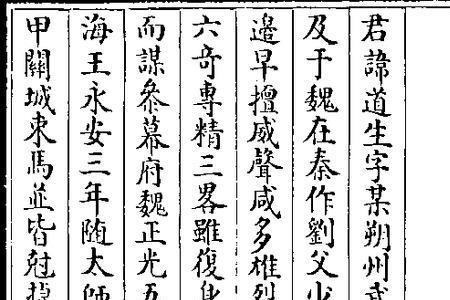 君諱道生字某朔州武
及于魏在秦作劉父少
邉早擅威聲咸多雄列
六竒專精三畧雖復身
而謀叅幕府魏正光五
海王永安三年随太師
甲關城東馬並皆尅